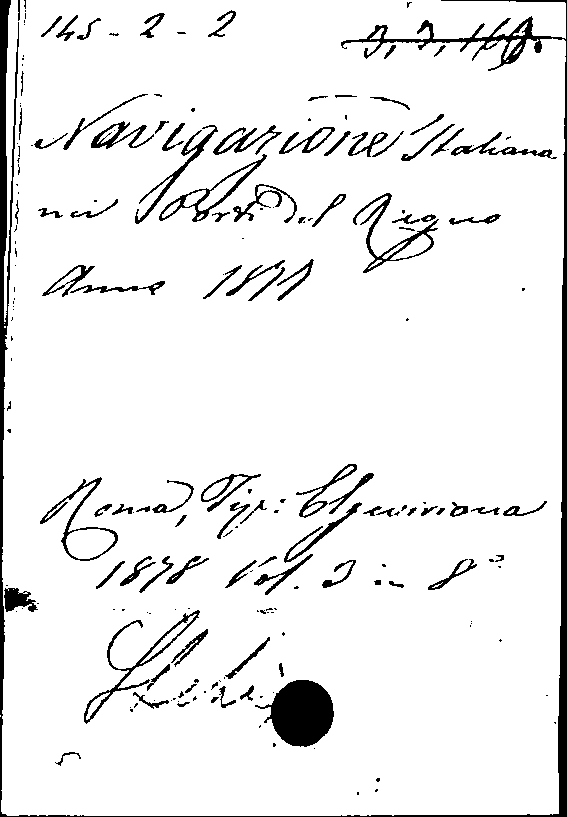 145-2-2 3, 3, 169.
Navigazione Italiana
nei Porti del Regno
Anno 1877
Roma, Tip: Elzeviriana
1878 Vol. 3 in 8°